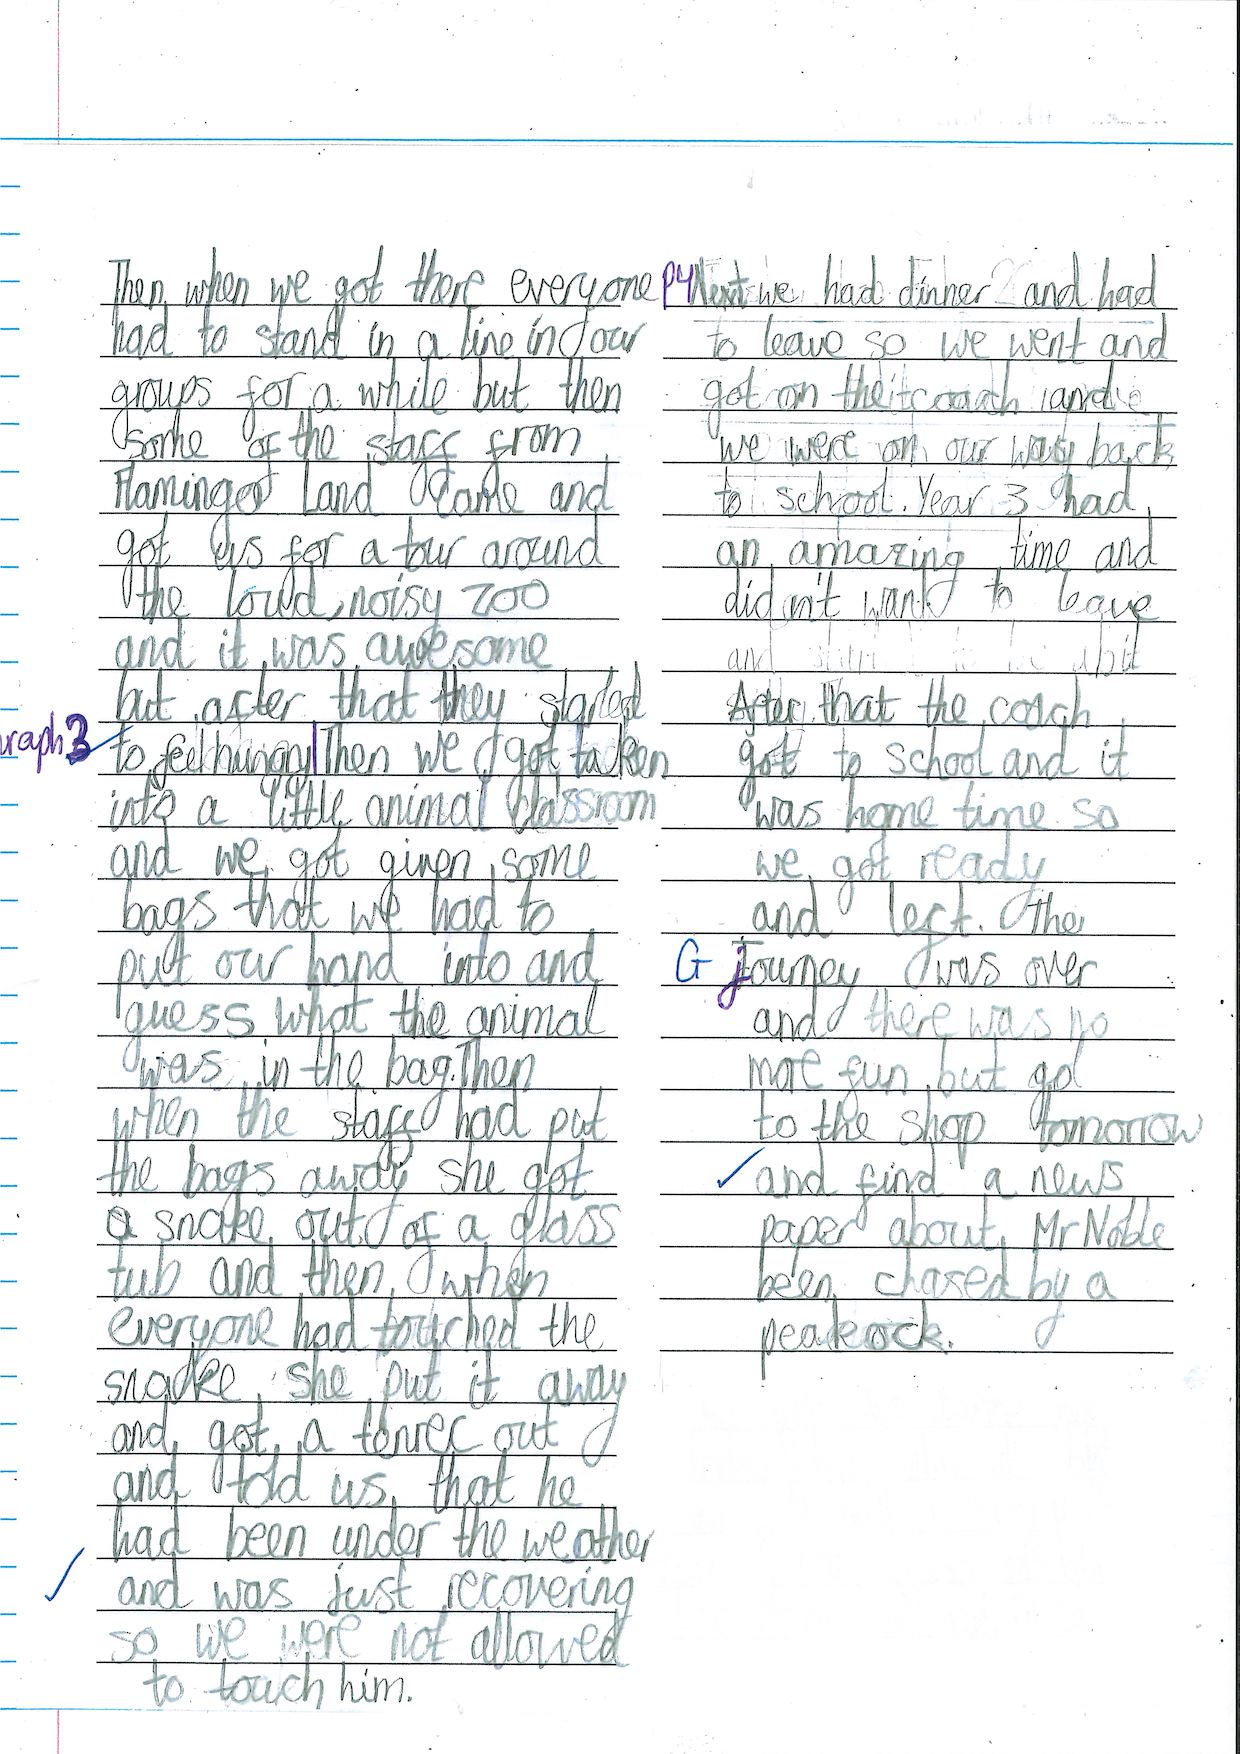 Then when we got there everyone
had to stand in a line in our
groups for a while but then
some of the staff from
Flamingo Land came and
got us for a tour around
the loud, noisy zoo
and it was awesome
but after that they started
to feel hungry Then we got taken
into a little animal classroom
and we got given some
bags that we had to
put our hand into and
guess what the animal
was in the bag. Then
when the staff had put
the bags away she got
a snake out of a glass
tub and then when
everyone had touched the
snake she put it away
and got a out
and told us that he
had been under the weather
and was just recovering
so we were not allowed
to touch him.
raph 3
P4 Next we had dinner and had
to leave so we went and
got on the coach and
we were on our way back
to school. Year 3 had
an amazing time and
didn't want to leave
and to be a bit
After that the coach
got to school and it
was home time so
we got ready
and left. The
G journey was over
and there was no
more fun but go
to the shop tomorrow
and find a news
paper about Mr Noble
been chased by a
peakcock.